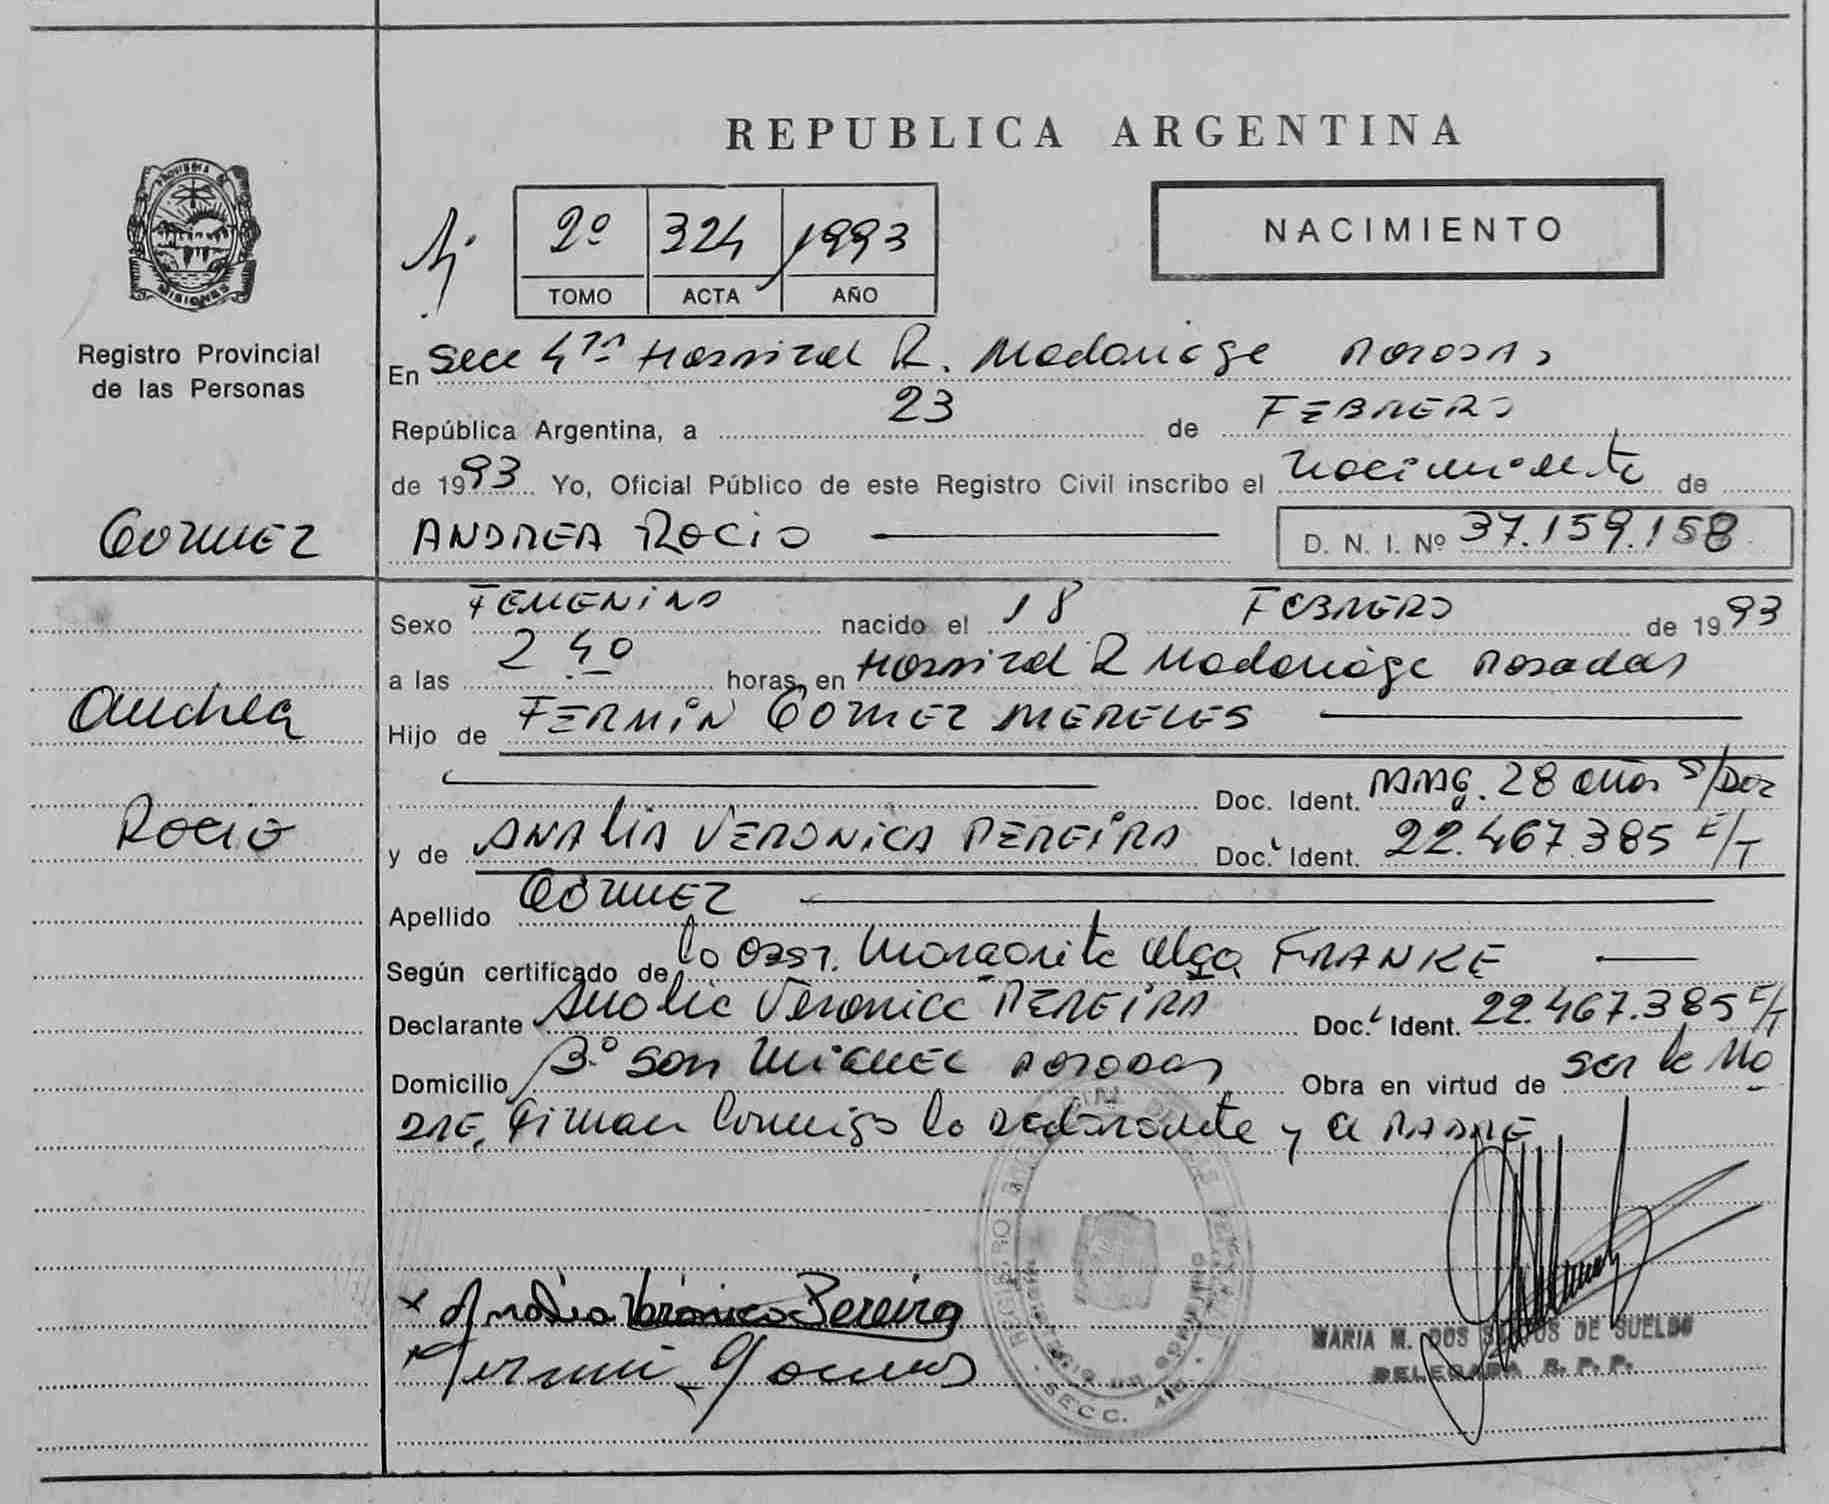 REPUBLICA ARGENTINA
PROVINCIA DE
MISIONES
2º 324 1993
TOMO ACTA AÑO
NACIMIENTO
Registro Provincial
de las Personas
En Secc 4ta Hospital R. Madariaga Posadas
República Argentina, a 23 de FEBRERO
de 1993 Yo, Oficial Público de este Registro Civil inscribo el nacimiento de
GOMEZ
ANDREA ROCIO D. N. I. Nº 37.159.158
Sexo FEMENINO nacido el 18 FEBRERO de 1993
a las 2 40 horas, en Hospital R Madariaga Posadas
Andrea
Hijo de FERMIN GOMEZ MERELES
Doc. Ident. PARAG. 28 años S/Doc
Rocio
y de ANALIA VERONICA PEREIRA Doc. Ident. 22.467.385 E/T
Apellido GOMEZ
Según certificado de la Obst. Margarita Olga FRANKE
Declarante Analia Veronica PEREIRA Doc. Ident. 22.467.385 E/T
Domicilio Bº San MIGUEL POSADAS Obra en virtud de ser la MA
DRE, Firman conmigo la declarante y el PADRE
x Analia Verónica Pereira
Fermin Gomez
MARIA M. DOS SANTOS DE SUELDO
DELEGADA R. P. P.
REGISTRO PROVINCIAL DE LAS PERSONAS
SECC. 4ta